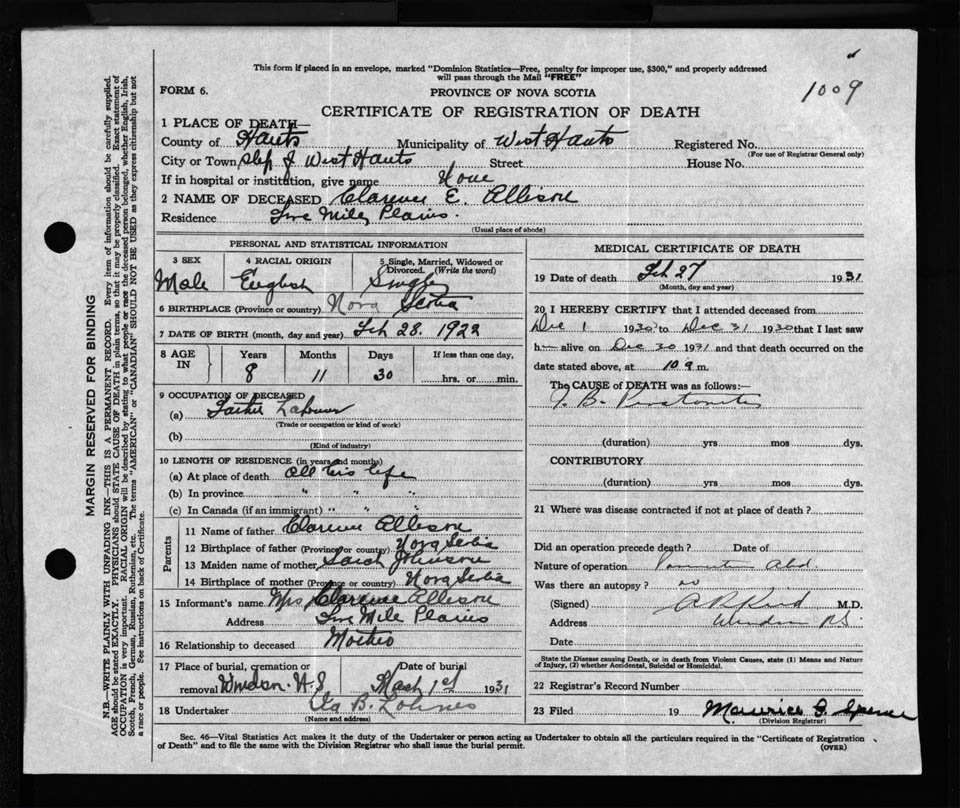 This form if placed in an envelope, marked "Dominion Statistics—Free, penalty for improper use, $300," and properly addressed
will pass through the Mail "FREE"
1009
FORM 6. PROVINCE OF NOVA SCOTIA
CERTIFICATE OF REGISTRATION OF DEATH
1 PLACE OF DEATH—
County of Hants Municipality of West Hants Registered No.
(For use of Registrar General only)
City or Town of West Hants Street House No.
If in hospital or institution, give name None
2 NAME OF DECEASED Clarence E. Allison
Residence Five Mile Plains.
(Usual place of abode)
PERSONAL AND STATISTICAL INFORMATION
3 SEX 4 RACIAL ORIGIN 5 Single, Married, Widowed or
Divorced. (Write the word)
Male English Single
6 BIRTHPLACE (Province or country) Nova Scotia
7 DATE OF BIRTH (month, day and year) Feb 28. 1922
8 AGE IN Years Months Days If less than one day,
8 11 30 hrs. or min.
9 OCCUPATION OF DECEASED
(a) Labourer
(Trade or occupation or kind of work)
(b)
(Kind of industry)
10 LENGTH OF RESIDENCE (in years and months)
(a) At place of death all his life
(b) In province " " "
(c) In Canada (if an immigrant) " " "
Parents
11 Name of father Clarence Allison
12 Birthplace of father (Province or country) Nova Scotia
13 Maiden name of mother Sarah Johnson
14 Birthplace of mother (Province or country) Nova Scotia
15 Informant's name Mrs Clarence Allison
Address Five Mile Plains
16 Relationship to deceased Mother
17 Place of burial, cremation or Date of burial
removal Windsor. N.S March 1st 1931
18 Undertaker B. Lohnes
(Name and address)
MEDICAL CERTIFICATE OF DEATH
19 Date of death Feb 27 1931
(Month, day and year)
20 I HEREBY CERTIFY that I attended deceased from
Dec 1 1930 to Dec 31 1930 that I last saw
h— alive on Dec 30 1931 and that death occurred on the
date stated above, at 10 m.
The CAUSE of DEATH was as follows:—
T. B. Peritonitis
(duration) yrs mos dys.
CONTRIBUTORY
(duration) yrs mos dys.
21 Where was disease contracted if not at place of death?
Did an operation precede death? Date of
Nature of operation Abd.
Was there an autopsy? no
(Signed) M.D.
Address Windsor NS.
Date
State the Disease causing Death, or in death from Violent Causes, state (1) Means and Nature
of Injury, (2) whether Accidental, Suicidal or Homicidal.
22 Registrar's Record Number
23 Filed 19 Maurice G. Spence
(Division Registrar)
Sec. 46—Vital Statistics Act makes it the duty of the Undertaker or person acting as Undertaker to obtain all the particulars required in the "Certificate of Registration
of Death" and to file the same with the Division Registrar who shall issue the burial permit.
(OVER)
MARGIN RESERVED FOR BINDING
N.B.—WRITE PLAINLY WITH UNFADING INK—THIS IS A PERMANENT RECORD. Every item of information should be carefully supplied.
AGE should be stated EXACTLY. PHYSICIANS should STATE CAUSE OF DEATH in plain terms so that it may be properly classified. Exact statement of
OCCUPATION is very important. RACIAL ORIGIN will be described by stating to what people or race the deceased person belonged, whether English, Irish,
Scotch, French, German, Russian, Ruthenian, etc. The terms "AMERICAN" or "CANADIAN" SHOULD NOT BE USED as they express citizenship but not
a race or people. See instructions on back of Certificate.